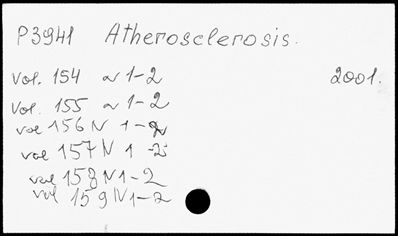 P3941 Atherosclerosis.
vol. 154 N 1-2 2001.
vol. 155 N 1-2
vol 156 N 1-2
vol 157 N 1-2
vol 158 N 1-2
vol 159 N 1-2